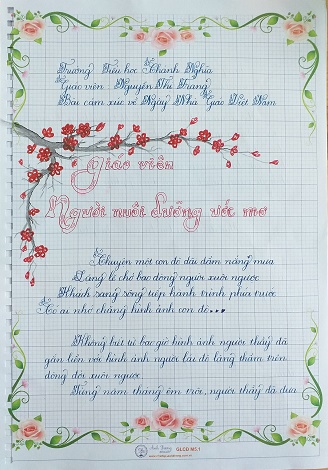 Trường Tiểu học Thanh Nghĩa
Giáo viên: Nguyễn Thị Trang
Bài cảm xúc về Ngày Nhà Giáo Việt Nam
Giáo viên
Người nuôi dưỡng ước mơ
Chuyện một con đò dầu dãm nắng mưa
Lặng lẽ chở bao dòng người xuôi ngược
Khách sang sông tiếp hành trình phía trước
Có ai nhớ chăng hình ảnh con đò...
Không biết từ bao giờ hình ảnh người thầy đã
gắn liền với hình ảnh người lái đò lặng thầm trên
dòng đời xuôi ngược.
Từng năm tháng êm trôi, người thầy đã đưa
GLCD MS.1